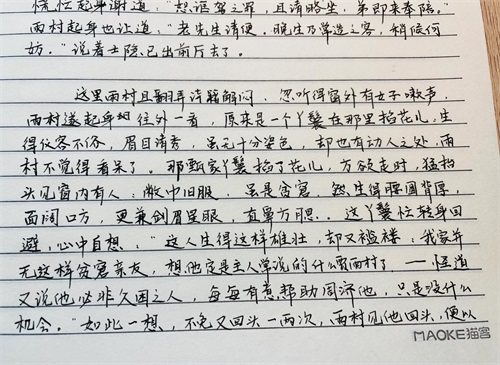 慌忙起身谢道："恕诓驾之罪，且请略坐，弟即来奉陪。"
雨村起身也让道："老先生请便。晚生乃常造之客，稍候何
妨。"说着士隐已出前厅去了。
这里雨村且翻弄诗籍解闷，忽听得窗外有女子嗽声，
雨村遂起身往外一看，原来是一个丫鬟在那里掐花儿，生
得仪容不俗，眉目清秀，虽无十分姿色，却也有动人之处，雨
村不觉得看呆了。那甄家丫鬟掐了花儿，方欲走时，猛抬
头见窗内有人：敝巾旧服，虽是贫窘，然生得腰圆背厚，
面阔口方，更兼剑眉星眼，直鼻方腮。这丫鬟忙转身回
避，心中自想："这人生得这样雄壮，却又褴褛，我家并
无这样贫窘亲友，想他定是主人常说的什么贾雨村了，——怪道
又说他必非久困之人，每每有意帮助周济他，只是没什么
机会。"如此一想，不免又回头一两次，雨村见他回头，便以
MAOKE猫客